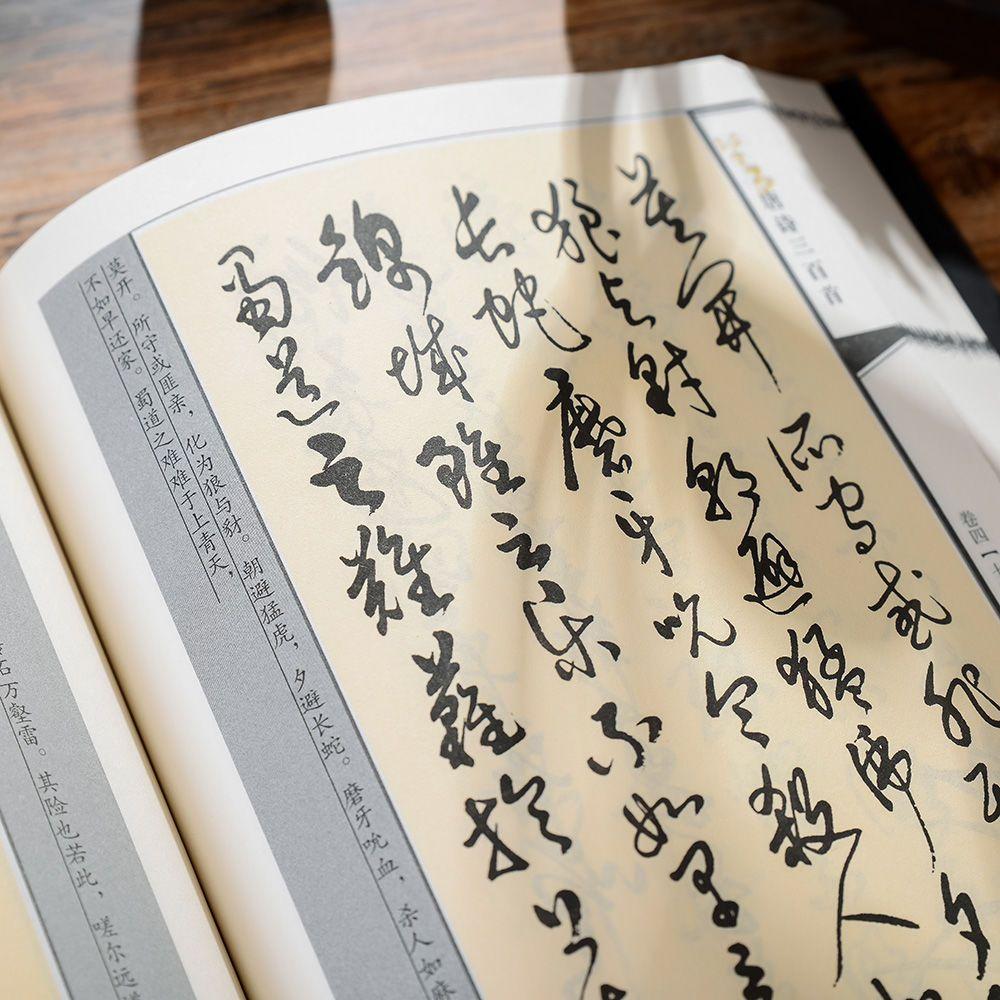 唐诗三百首
卷四
莫開所守或匪
狼与豺朝避猛虎夕
長蛇磨牙吮血殺人
錦城雖云樂不如早
蜀道之難難於上
莫开。所守或匪亲，化为狼与豺。朝避猛虎，夕避长蛇。磨牙吮血，杀人如麻
不如早还家。蜀道之难难于上青天，
石万壑雷。其险也若此，嗟尔远道